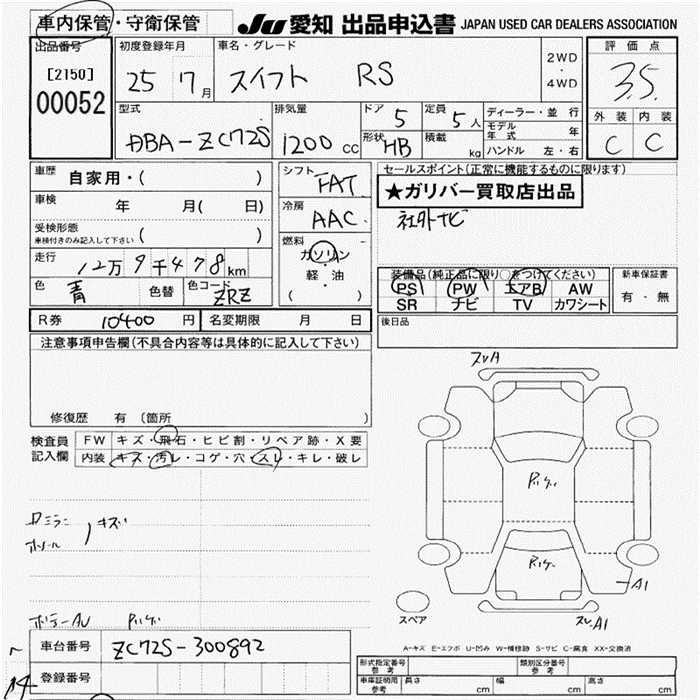 車内保管・守衛保管 JU 愛知 出品申込書 JAPAN USED CAR DEALERS ASSOCIATION
出品番号 初度登録年月 車名・グレード 2WD・4WD 評価点
[2150] 25 7月 スイフト RS 3.5
00052 外装 内装
型式 排気量 ドア 定員 ディーラー・並行
DBA-ZC72S 1200cc 5 5人 モデル年式 年
形状 HB 積載 kg ハンドル 左・右 C C
車歴 自家用・( ) シフト FAT セールスポイント(正常に機能するものに限ります)
★ガリバー買取店出品
車検 年 月( 日) 冷房 AAC 社外ナビ
受検形態
車検付きのみ記入して下さい ( ) 燃料 ガソリン・軽油 ( )
走行 12万9千478km
装備品(純正品に限り○をつけてください) 新車保証書
色 青 色替 色コード ZRZ PS PW エアB AW 有・無
SR ナビ TV カワシート
R券 10400円 名変期限 月 日 後日品
注意事項申告欄(不具合内容等は具体的に記入して下さい)
修復歴 有 (箇所 )
検査員記入欄 FW キズ・飛石・ヒビ割・リペア跡・X要
内装 キズ・汚レ・コゲ・穴・スレ・キレ・破レ
スリA
Pいけい
Pいけい
ミラー キズ
A1
スリA1
スペア
車台番号 ZC72S-300892
A-キズ E-エクボ U-凹み W-補修跡 S-サビ C-腐食 XX-交換済
登録番号
形式指定番号 参考 類別区分番号 参考
車庫証明用 参考 長さ cm 幅 cm 高さ cm